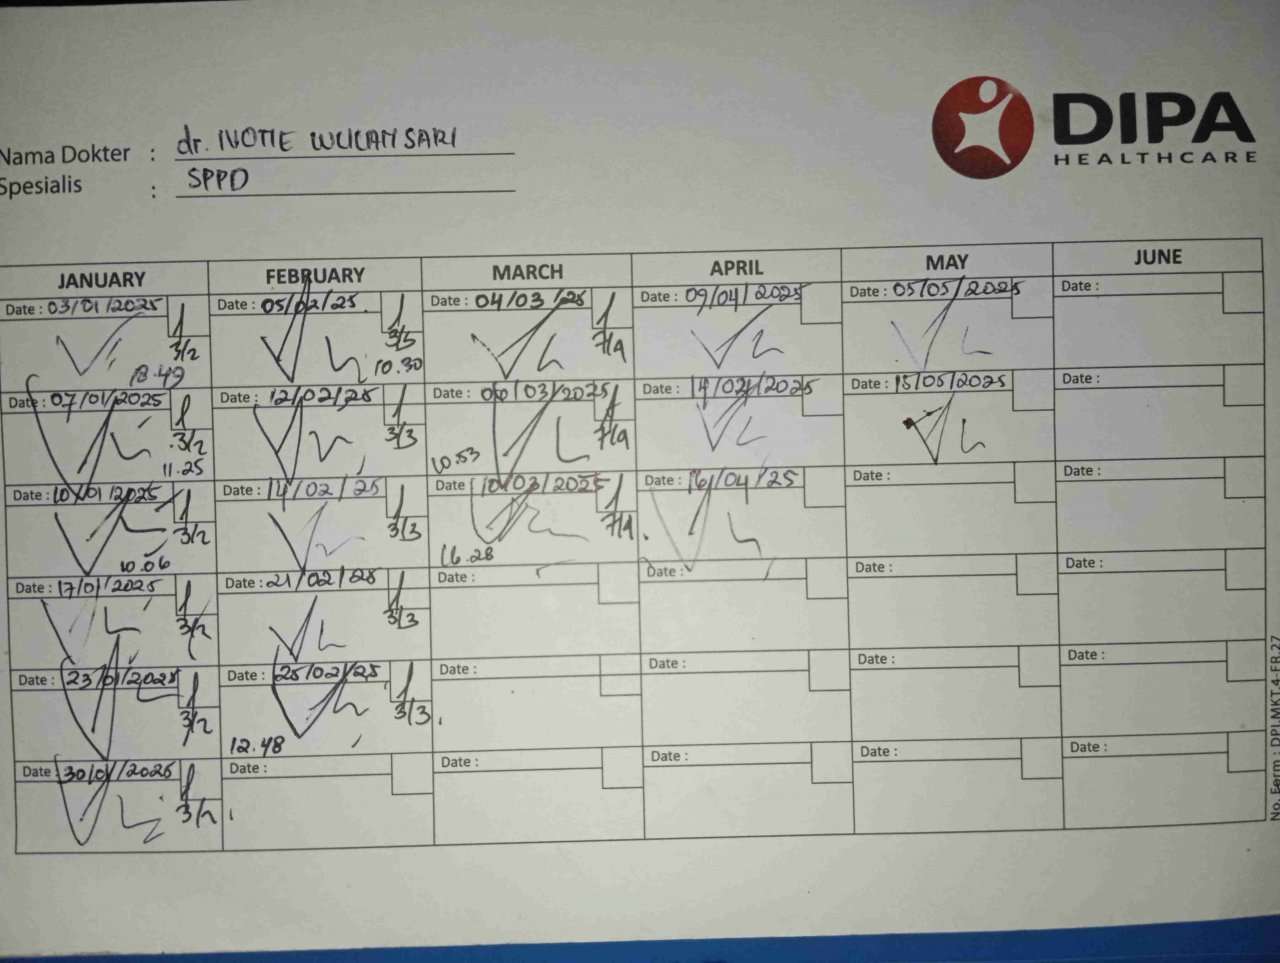 DIPA
HEALTHCARE
Nama Dokter : dr. IVOTIE WULAN SARI
Spesialis : SPPD
JANUARY FEBRUARY MARCH APRIL MAY JUNE
Date : 03/01/2025 Date : 05/02/25. Date : 04/03/25 Date : 09/04/2025 Date : 05/05/2025 Date :
3/2 3/3 7/4
18.49 10.30
Date : 07/01/2025 Date : 12/02/25 Date : 06/03/2025 Date : 14/04/2025 Date : 15/05/2025 Date :
3/2 3/3 7/4
11.25 10.53
Date : 10/01/2025 Date : 14/02/25 Date : 10/03/2025 Date : 16/04/25 Date : Date :
3/2 3/3 7/4
10.06 16.28
Date : 17/01/2025 Date : 21/02/25 Date : Date : Date : Date :
3/2 3/3
Date : 23/01/2025 Date : 25/02/25 Date : Date : Date : Date :
3/2 3/3
12.48
Date : 30/01/2025 Date : Date : Date : Date : Date :
3/2
No. Form : DPI.MKT.4-FR.27